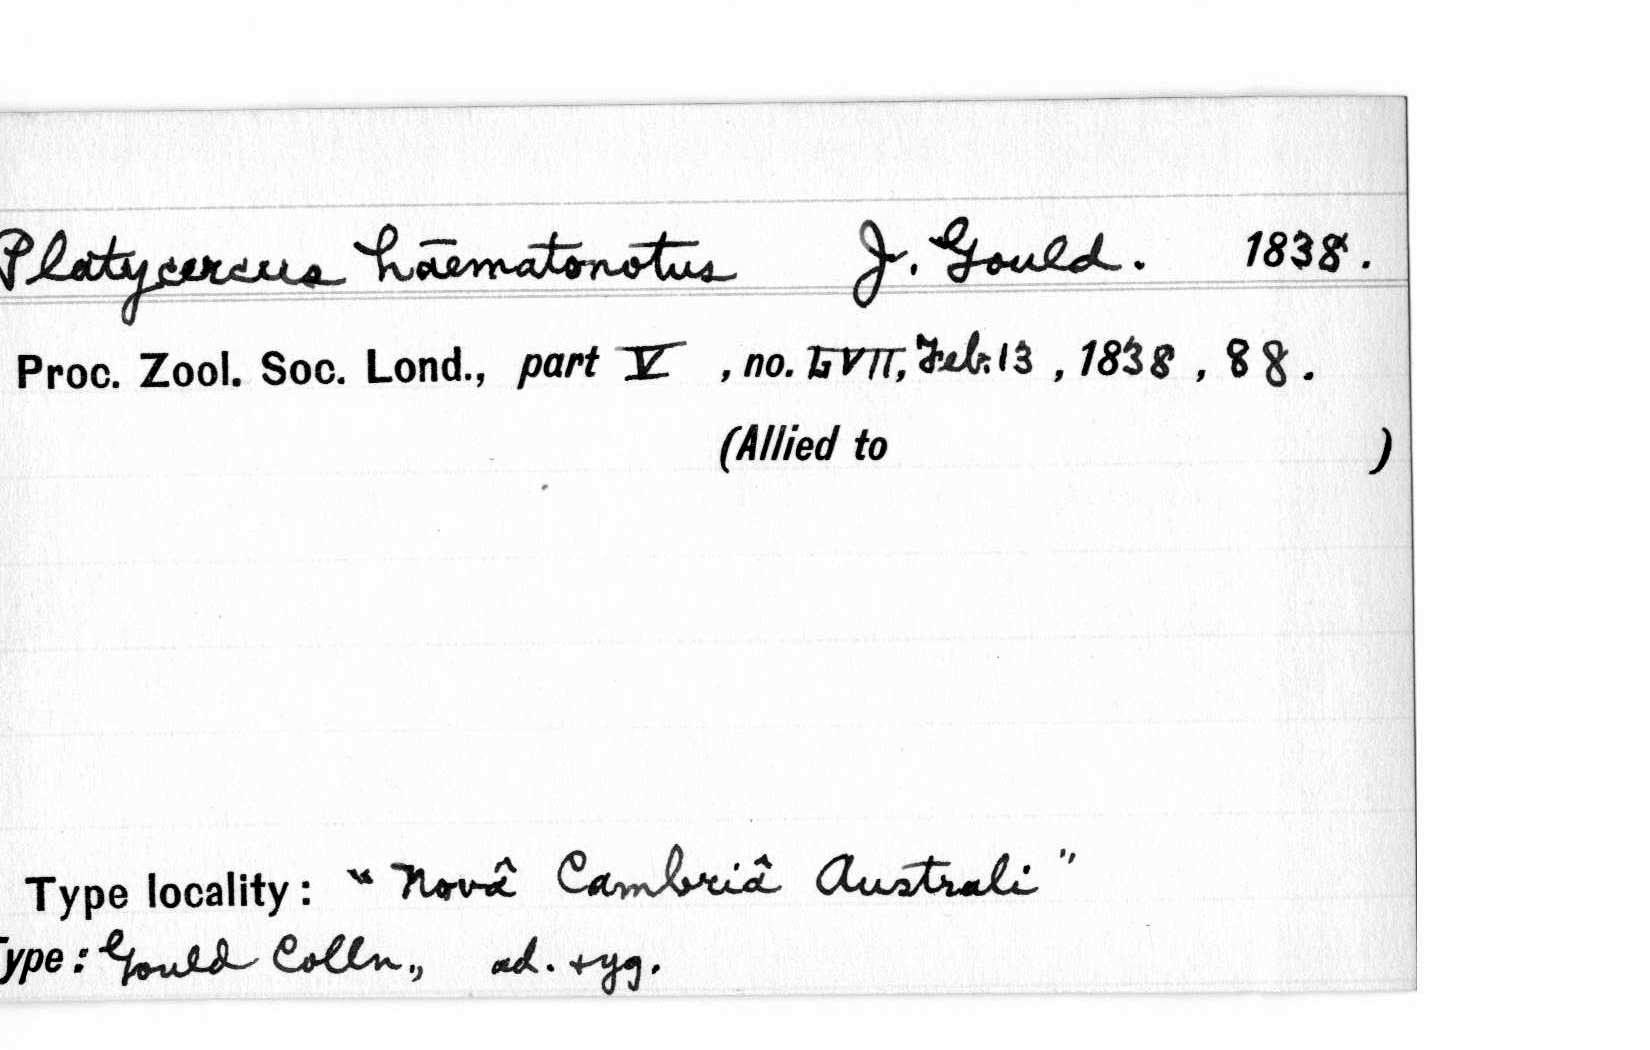 Platycercus hāematonotus J. Gould. 1838.
Proc. Zool. Soc. Lond., part V , no. LVII, Feb. 13 , 1838 , 88.
(Allied to )
Type locality: "Novâ Cambriâ Australi"
Type: Gould Colln., ad. + yg.